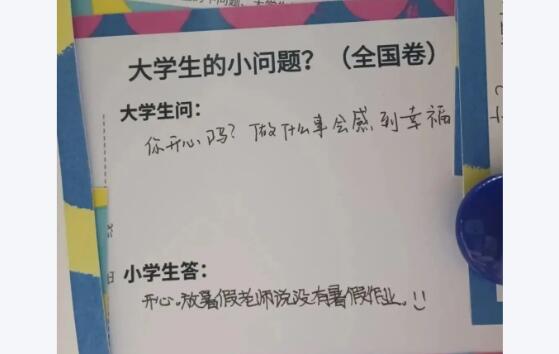 大学生的小问题？（全国卷）
大学生问：
你开心吗？做什么事会感到幸福
小学生答：
开心。放暑假老师说没有暑假作业。!!